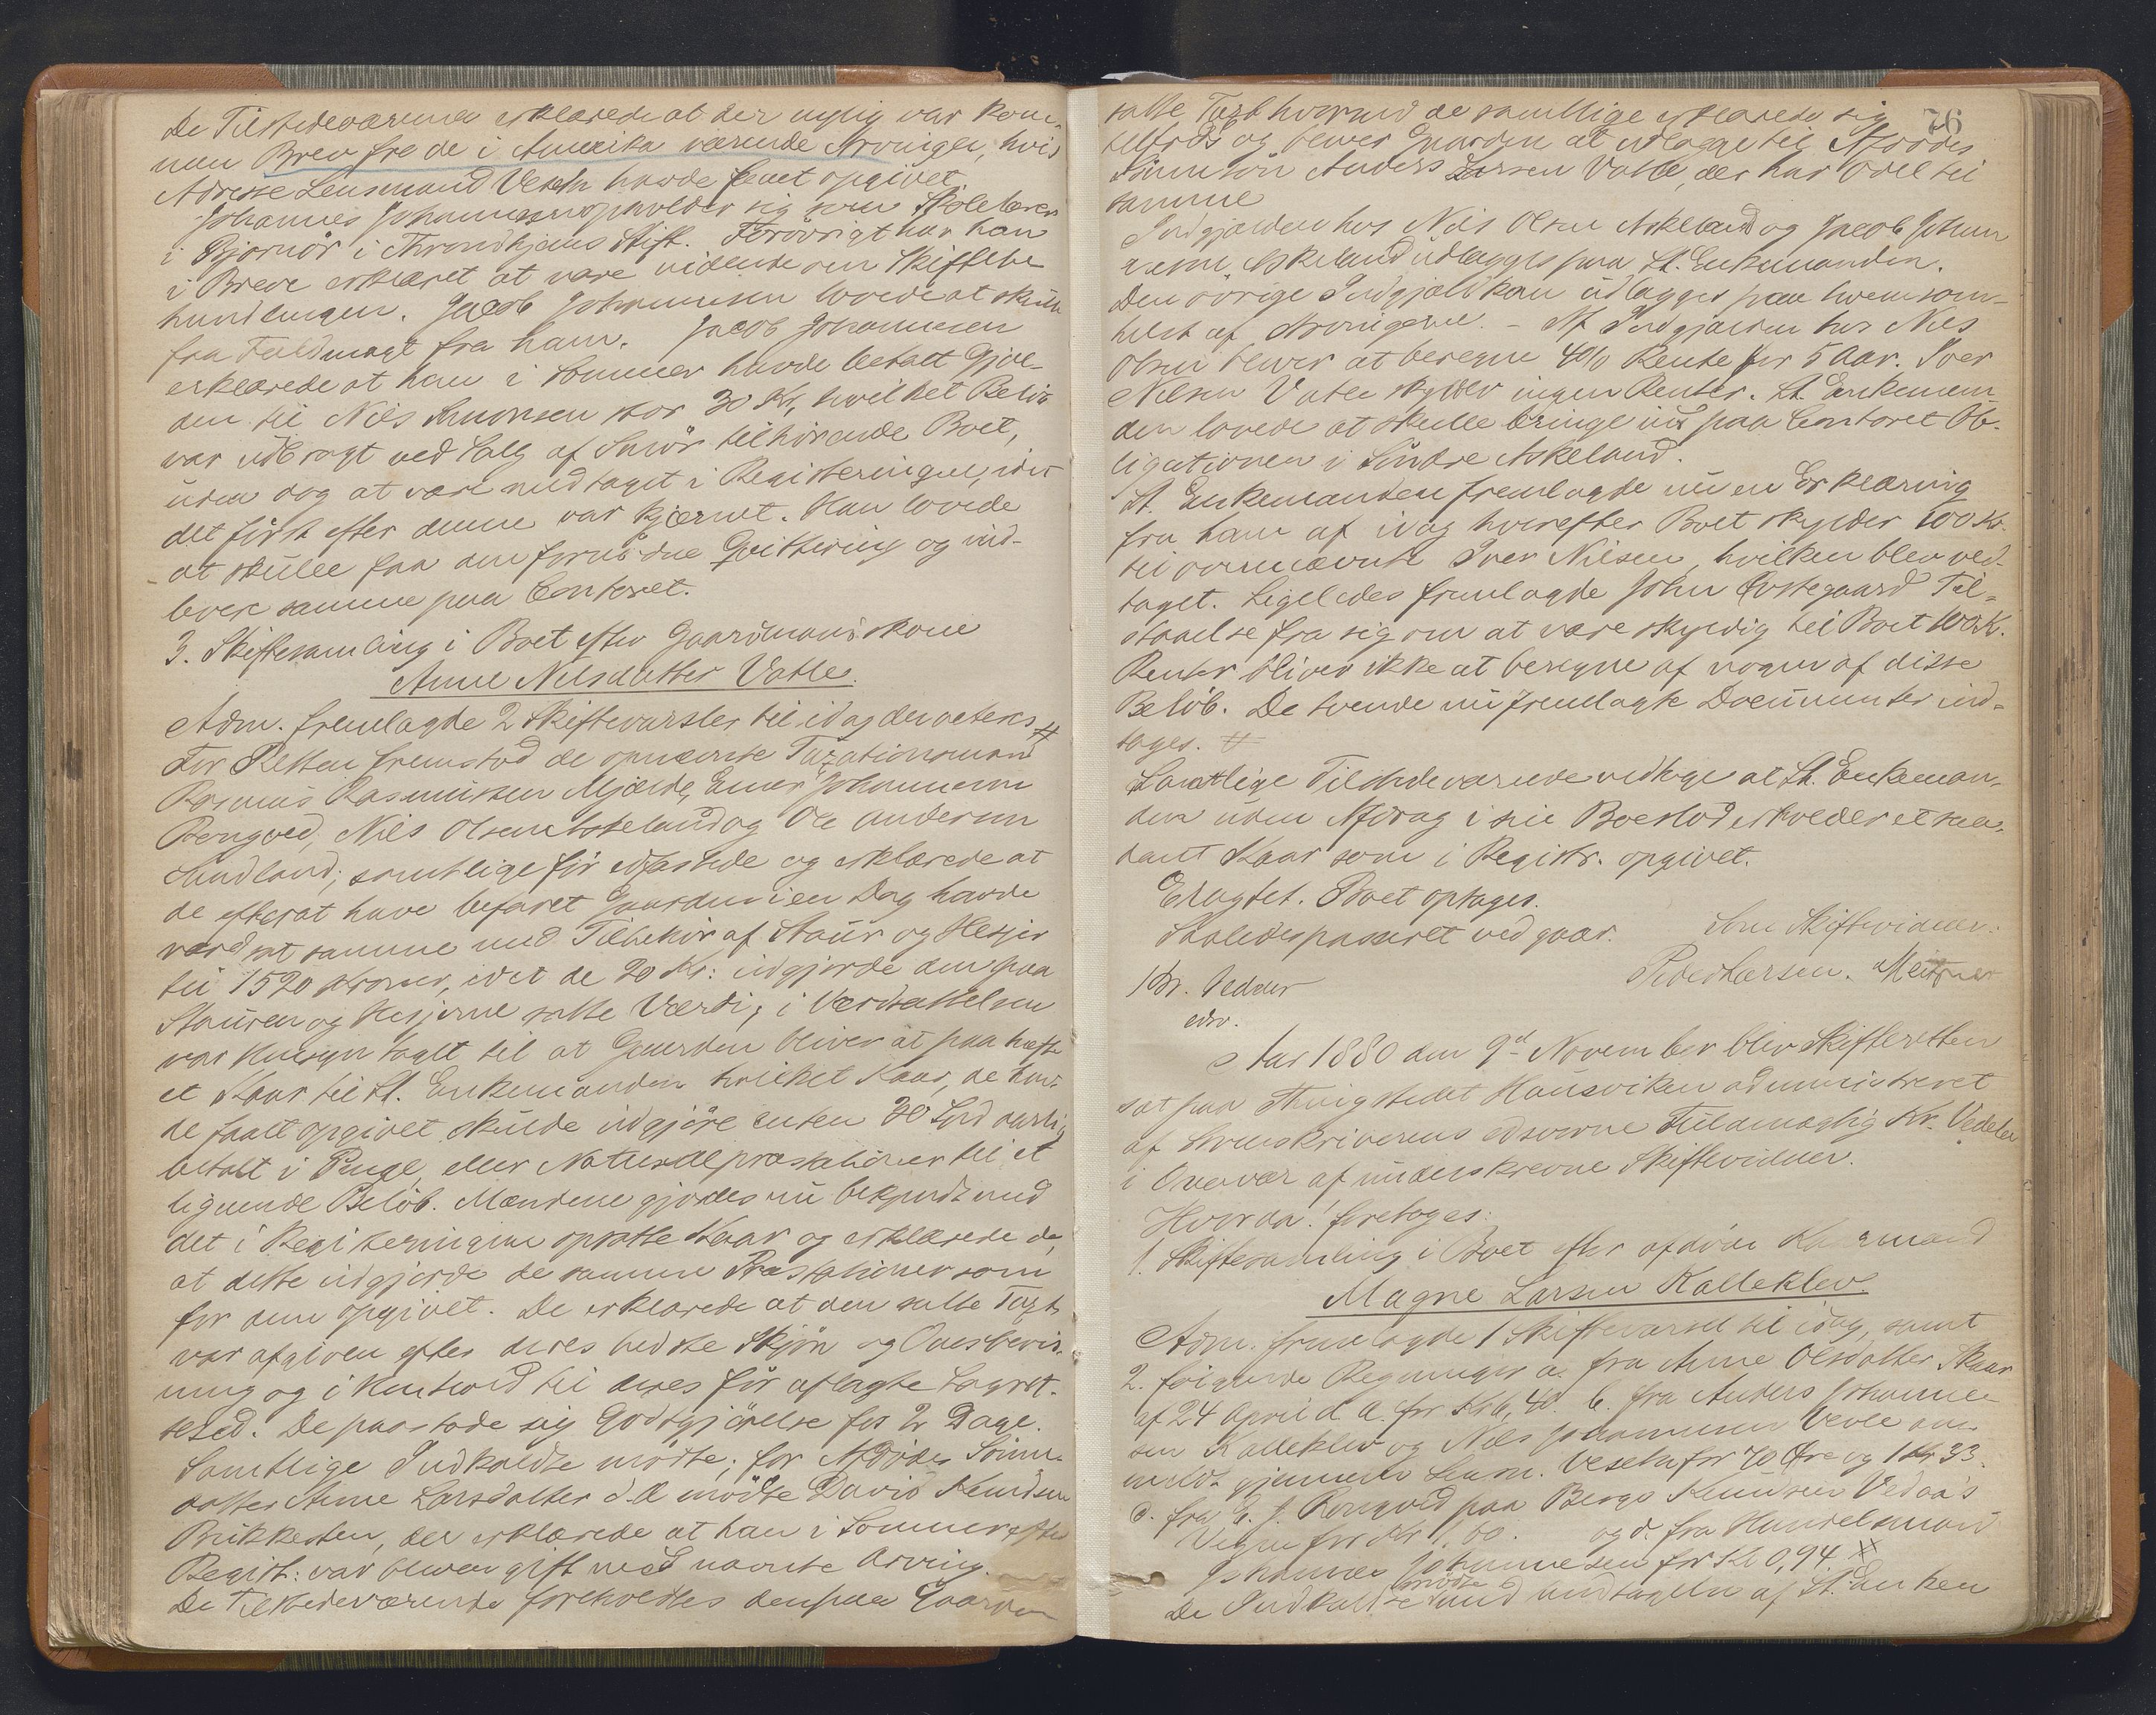 De Tilstedeværende erklærede at der nylig var kom-
men Brev fra de i Amerika værende Arvinger, hvis
Adresse Lensmand Veseth havde faaet opgivet.
Johannes Johannessen opholder sig som Skolelærer
i Bjørnør i Throndhjems Stift. Forøvrigt har han
i Breve erklæret at være vidende om Skiftebe-
handlingen. Jacob Johannesen lovede at skaffe
fra Fuldmagt fra ham. Jacob Johannesen
erklærede at han i Sommer havde betalt Gjæl-
den til Nils Knudsen stor 30 Kr, hvilket Beløb
var udbragt ved Salg af Smør tilhørende Boet,
uden dog at være medtaget i Registreringen, idet
det først efter denne var kjærnet. Han lovede
at skulle faa den fornødne Qvittering og ind-
levere samme paa Contoret.
3. Skiftesamling i Boet efter Gaardmandskone
Anne Nilsdatter Vatle.
Adm. fremlagde 2 Skiftevarsler til idag der vedtoges #
For Retten fremstod de opnævnte Taxationsmænd
Rasmus Rasmussen Mjelde, Einer Johannesen
Rongved, Nils Olsen Askeland og Ole Andersen
Sundland; samtlige før edfæstede og erklærede at
de efterat have befaret Gaarden i en Dag havde
værdsat samme med Tilbehør af Staur og Hesjer
til 1520 Kroner, idet de 20 Kr: udgjorde den paa
Stauren og Hesjerne satte Værdi; i Værdsættelsen
var Hensyn taget til at Gaarden bliver at paahefte
et Kaar til St. Enkemanden hvilket Kaar, de hav-
de faaet opgivet skulde udgjøre enten 20 Spd aarlig
betalt i Penge, eller Naturalpræstationer til et
lignende Beløb. Mændene gjordes nu bekjendt med
det i Registeringen opsatte Kaar og erklærede de,
at dette udgjorde de samme Præstationer som
for dem opgivet. De erklærede at den satte Taxt
var afgiven efter deres bedste Skjøn og Overbevis-
ning og i Henhold til deres før aflagte Lagret-
tesed. De paastode sig Godtgjørelse for 2 Dage.
Samtlige Indkaldte mødte; for Afdødes Sønne-
datter Anne Larsdatter d. æ mødte David Knudsen
Brekkesten, der erklærede at han i Sommer efter
Regist: var bleven gift med nævnte Arving.
De Tilstedeværende foreholdtes den paa Gaarden
76
satte Taxt hvormed de samtlige erklærede sig
tilfreds og bliver Gaarden at udlægge til Afdødes
Sønnesøn Anders Larsen Vatle, der har Odel til
samme
Indgjælden hos Nils Olsen Askeland og Jacob Johan-
nesen Askeland udlægges paa St. Enkemanden.
Den øvrige Indgjæld kan udlægges paa hvemsom-
helst af Arvingerne. – Af Indgjælden hos Nils
Olsen bliver at beregne 4% Rente for 5 Aar. Iver
Nilsen Vatle skylder ingen Renter. St. Enkeman-
den lovede at skulle bringe ind paa Contoret Ob-
ligationen i Sindre Askeland.
St. Enkemanden fremlagde nu en Erklæring
fra ham af idag hvorefter Boet skylder 100 Kr.
til ovennævnte Iver Nilsen, hvilken blev ved-
taget. Ligeledes fremlagde John Østegaard Til-
staaelse fra sig om at være skyldig til Boet 100 K.
Renter bliver ikke at beregne af nogen af disse
Beløb. De tvende nu fremlagte Documenter ind-
tages. #
Samtlige Tilstedeværende vedtoge at St. Enkeman-
den uden Afdrag i sin Boeslod erholder et saa-
dant Kaar som i Registr. opgivet.
Eragtet. Boet optages.
Saaledes passeret vedgaar. Som Skiftevidner:
Peder Larsen.
Kr. Vedeler
edsv.
Aar 1880 den 9d November blev Skifteretten
sat paa Thingstedet Hausviken administreret
af Sorenskriverens edsvorne Fuldmægtig Kr. Vedeler
i Overvær af underskrevne Skiftevidner.
Hvorda! foretoges:
1. Skiftesamling i Boet efter afdøde Kaarmand
Magne Larsen Kalleklev.
Adm. fremlagde 1 Skiftevarsel til idag, samt
2. følgende Regninger a. fra Anne Olsdatter Skaar
af 24 April d. A. for Kr 6,40. b. fra Anders Johanne-
sen Kalleklev og Nils Johannesen Vevle an-
meldt gjennem Lensm. Veseth for 70 Øre og 1 Kr 33.
c. fra E. J. Rongved paa Berge Knudsen Vedaa's
Vegne for Kr 1,00. og d. fra Handelsmand
Johannes Johannesen for Kr 0,94. #
De Indkaldte mødte med undtagelse af St. Enken